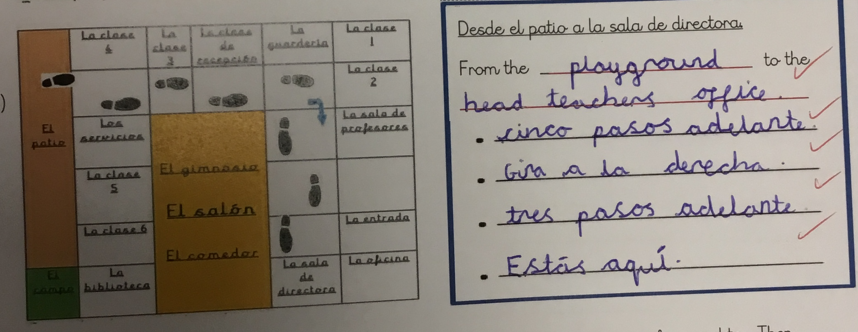 La clase
4
La
clase
3
La clase
de
recepción
La
guardería
La clase
1
La clase
2
El
patio
Los
servicios
La sala de
profesores
El gimnasio
La clase
5
El salón
La clase 6
La entrada
El comedor
El
campo
La
biblioteca
La sala
de
directora
La oficina
Desde el patio a la sala de directora.
From the playground to the
head teachers office.
• cinco pasos adelante.
• Gira a la derecha.
• tres pasos adelante
• Estás aquí.